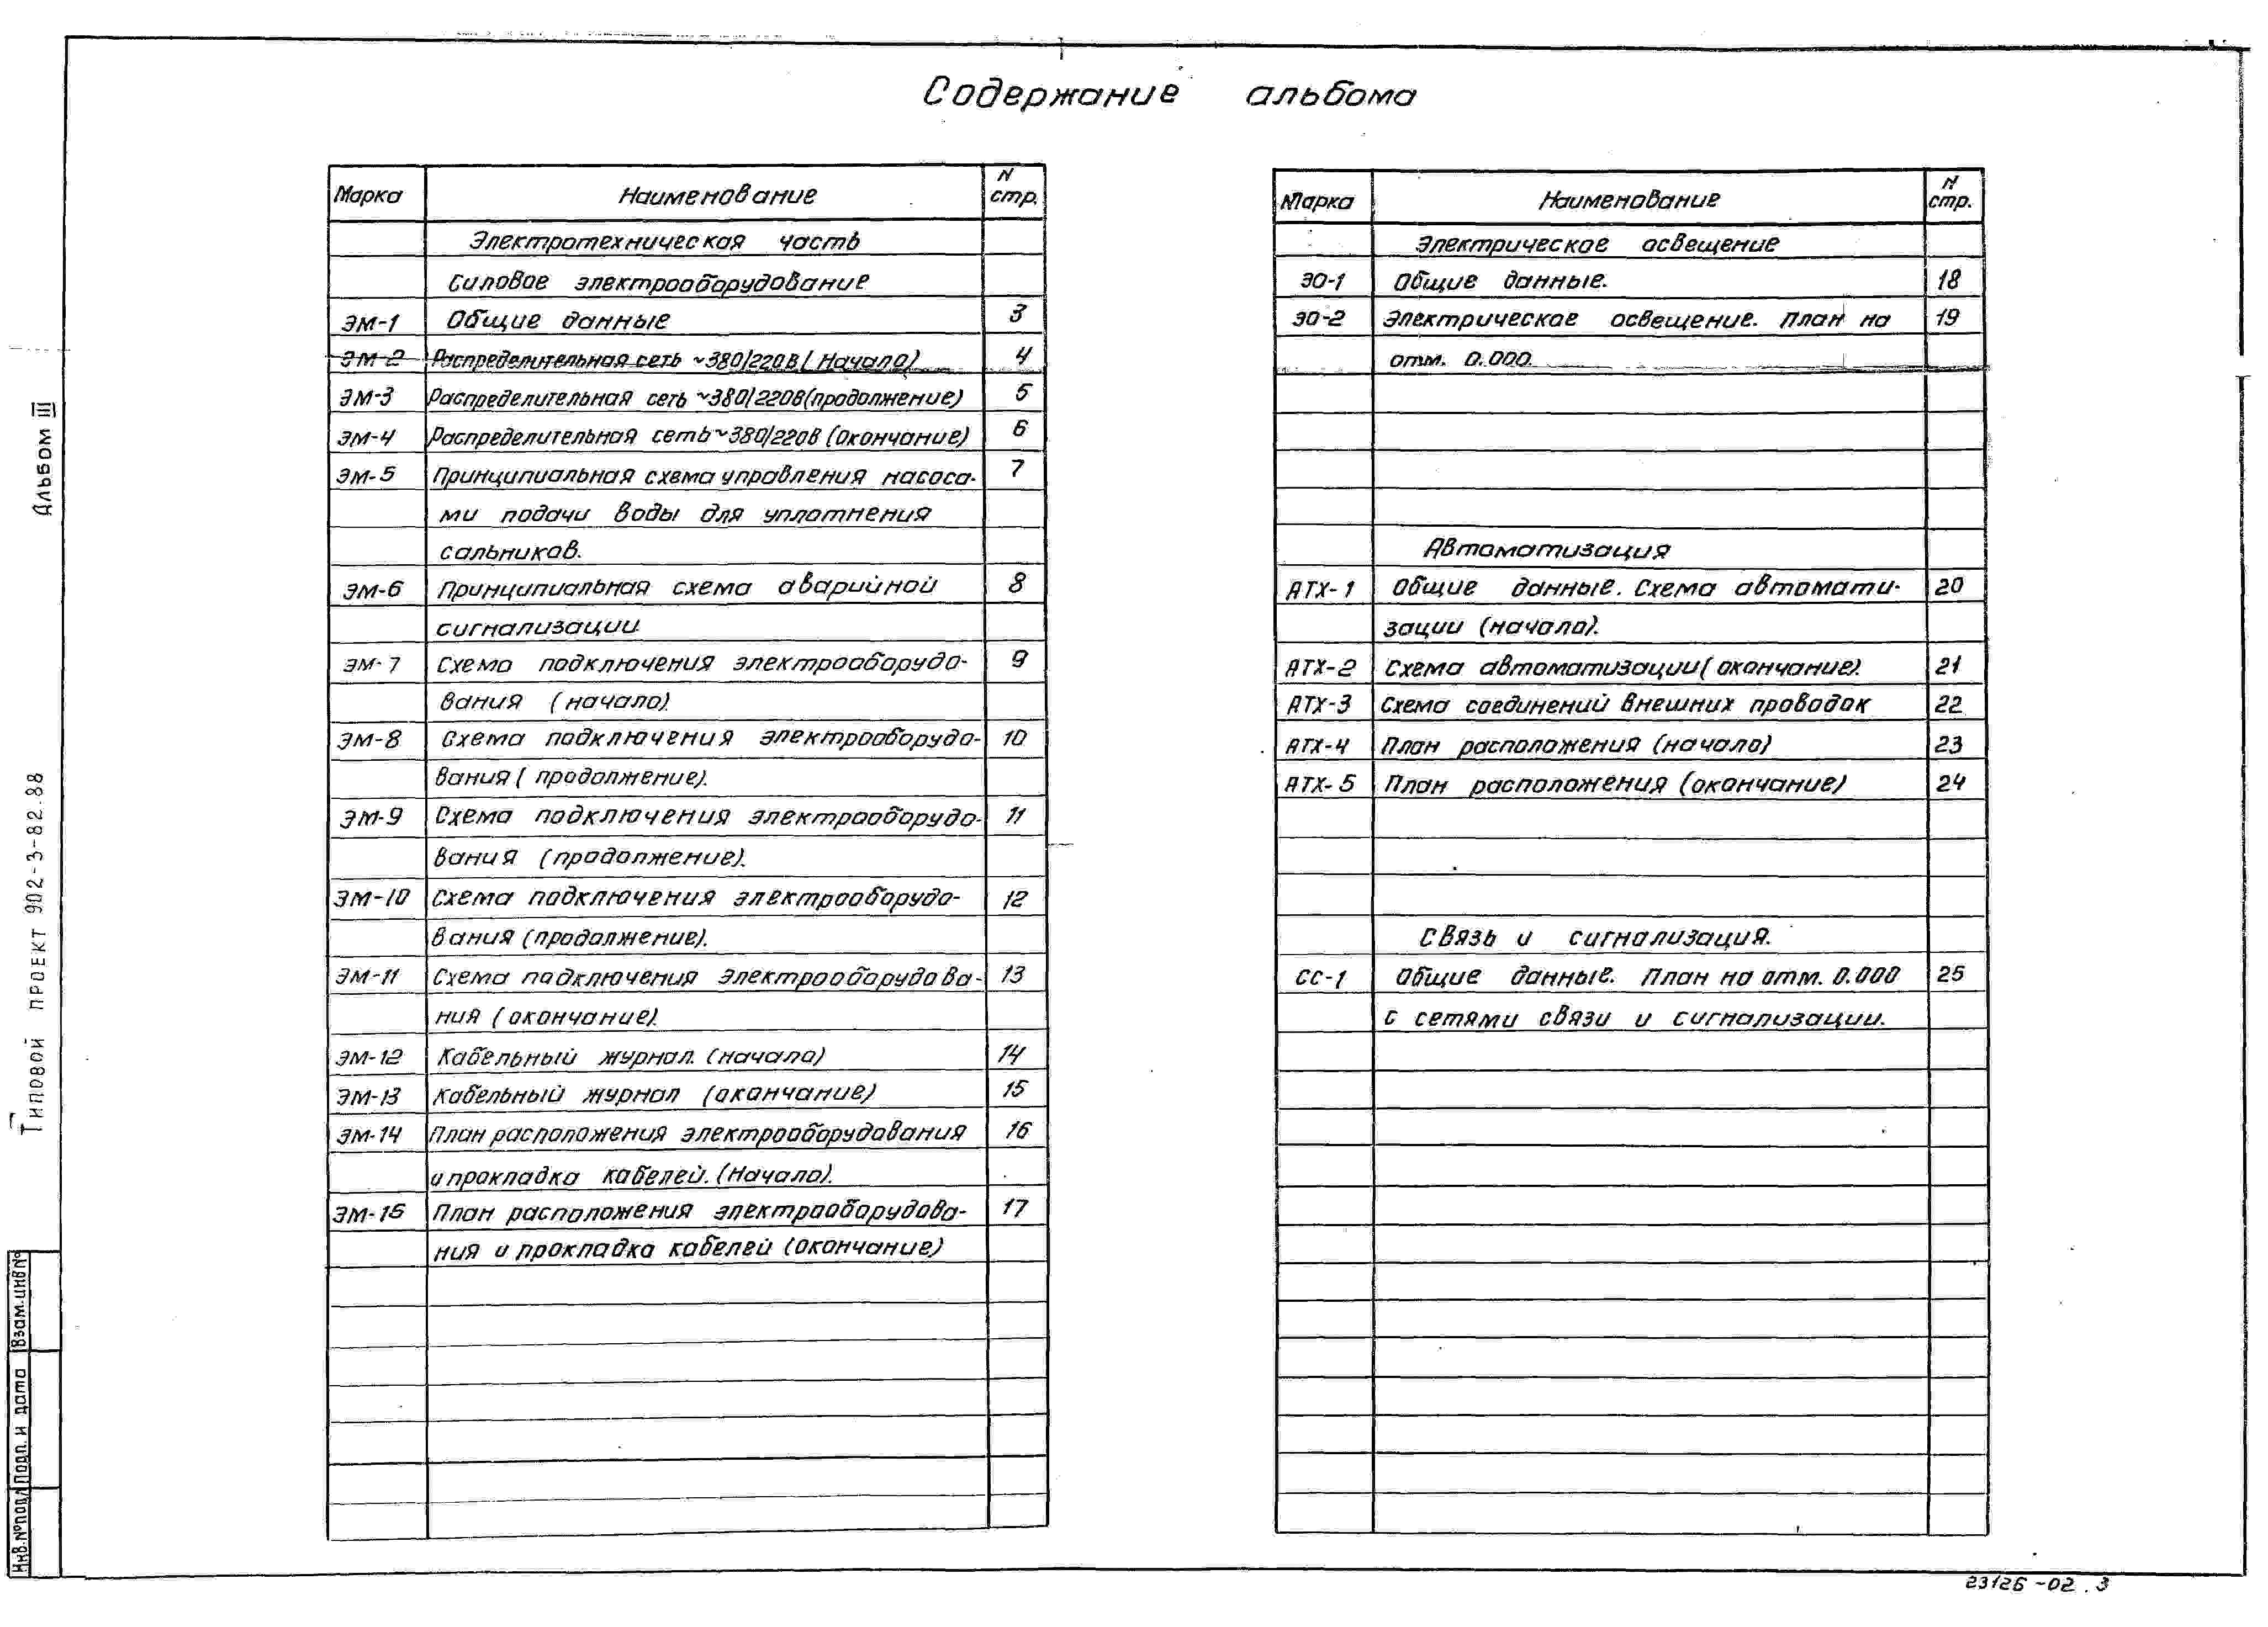 Содержание альбома
Марка Наименование N стр.
Электротехническая часть
Силовое электрооборудование
ЭМ-1 Общие данные 3
ЭМ-2 Распределительная сеть ~380/220В (Начало) 4
ЭМ-3 Распределительная сеть ~380/220В (продолжение) 5
ЭМ-4 Распределительная сеть ~380/220В (окончание) 6
ЭМ-5 Принципиальная схема управления насоса- 7
ми подачи воды для уплотнения
сальников.
ЭМ-6 Принципиальная схема аварийной 8
сигнализации
ЭМ-7 Схема подключения электрооборудо- 9
вания (начало).
ЭМ-8 Схема подключения электрооборудо- 10
вания (продолжение).
ЭМ-9 Схема подключения электрооборудо- 11
вания (продолжение).
ЭМ-10 Схема подключения электрооборудо- 12
вания (продолжение).
ЭМ-11 Схема подключения электрооборудова- 13
ния (окончание).
ЭМ-12 Кабельный журнал. (начало) 14
ЭМ-13 Кабельный журнал (окончание) 15
ЭМ-14 План расположения электрооборудования 16
и прокладка кабелей. (Начало).
ЭМ-15 План расположения электрооборудова- 17
ния и прокладка кабелей (окончание)
Марка Наименование N стр.
Электрическое освещение
ЭО-1 Общие данные. 18
ЭО-2 Электрическое освещение. План на 19
отм. 0.000.
Автоматизация
АТХ-1 Общие данные. Схема автомати- 20
зации (начало).
АТХ-2 Схема автоматизации (окончание). 21
АТХ-3 Схема соединений внешних проводок 22
АТХ-4 План расположения (начало) 23
АТХ-5 План расположения (окончание) 24
Связь и сигнализация.
СС-1 Общие данные. План на отм. 0.000 25
с сетями связи и сигнализации.
Альбом III
Типовой проект 902-3-82.88
Взам.инв№
Подп. и дата
Инв.№подл
23126-02 . 3